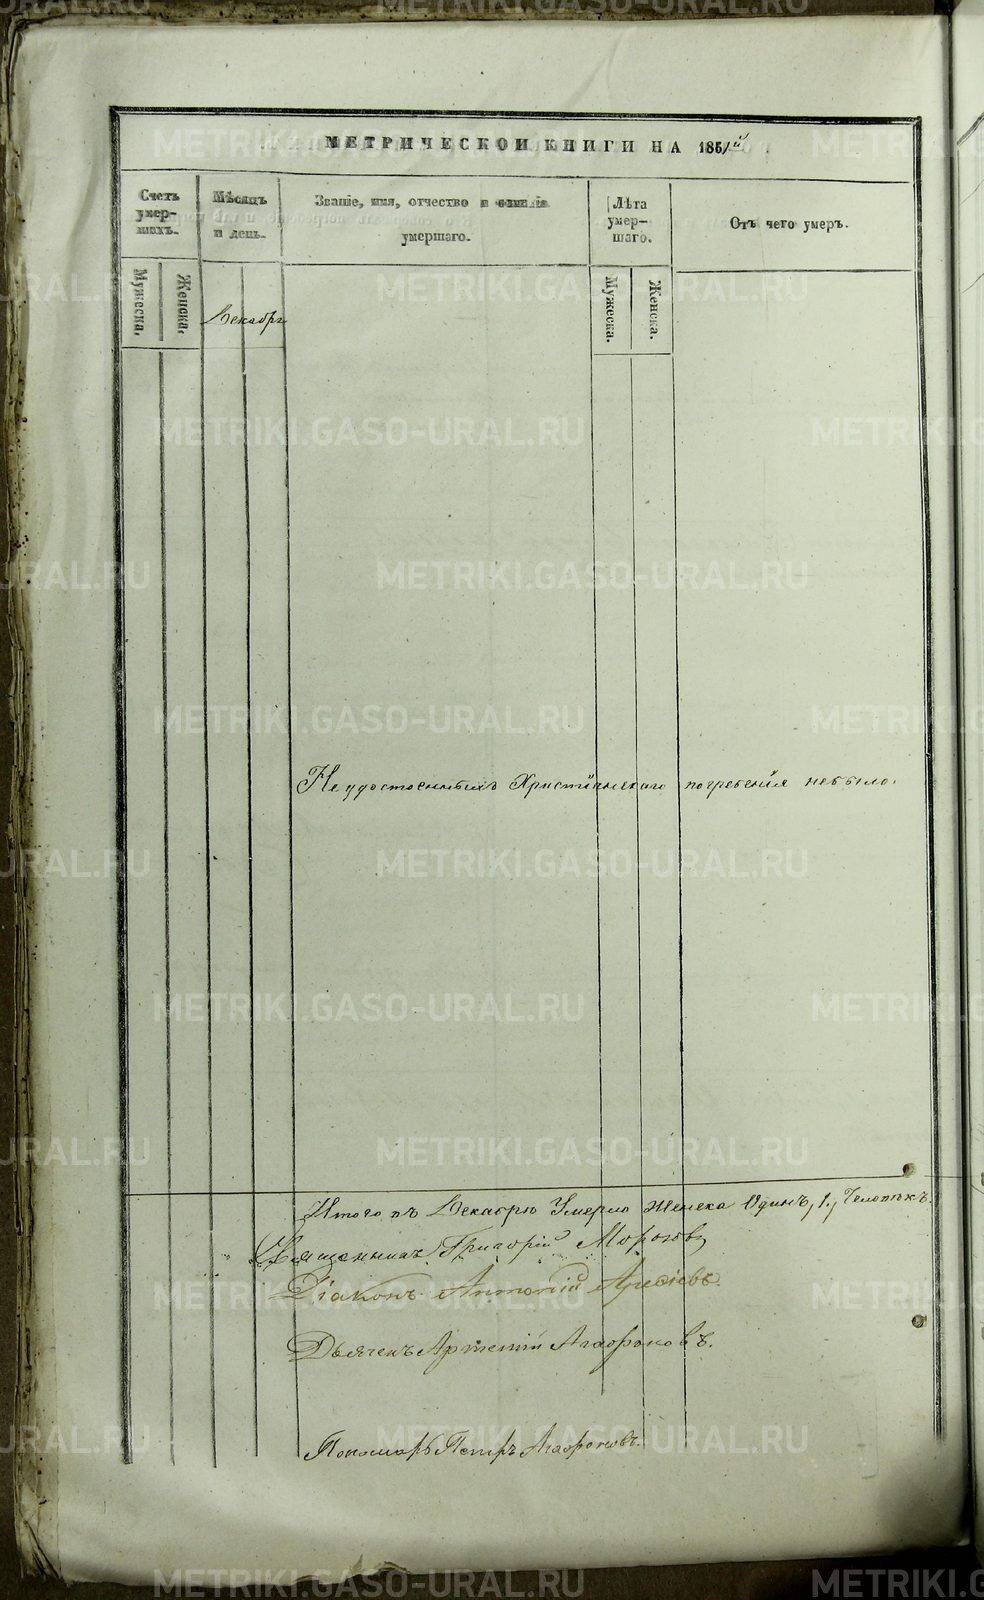 МЕТРИЧЕСКОЙ КНИГИ НА 1851й
Счетъ умер-шихъ.
Мѣсяцъ и день.
Званіе, имя, отчество и фамилія умершаго.
Лѣта умер-шаго.
Отъ чего умеръ.
Мужеска.
Женска.
Мужеска.
Женска.
Декабрь
Неудостоенныхъ Христіанскаго погребенія небыло.
Итого въ Декабрѣ Умерло Женска Одинъ, 1, Человѣкъ.
Священникъ Григорій Морозовъ
Діаконъ Антоній
Дьячекъ Артемій Агафоновъ.
Пономарь Петръ Агафоновъ.
METRIKI.GASO-URAL.RU